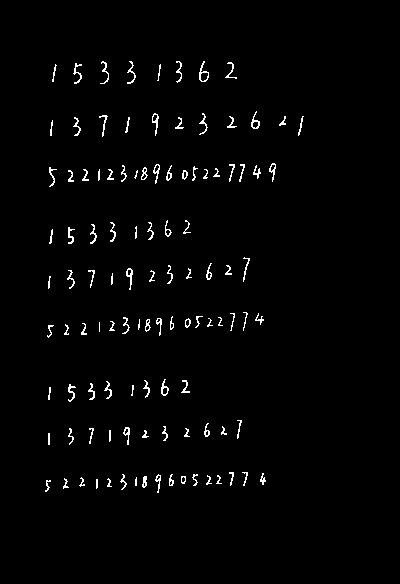 15331362
13719232621
522123189605227749
15331362
13719232627
52212318960522774
15331362
13719232627
52212318960522774